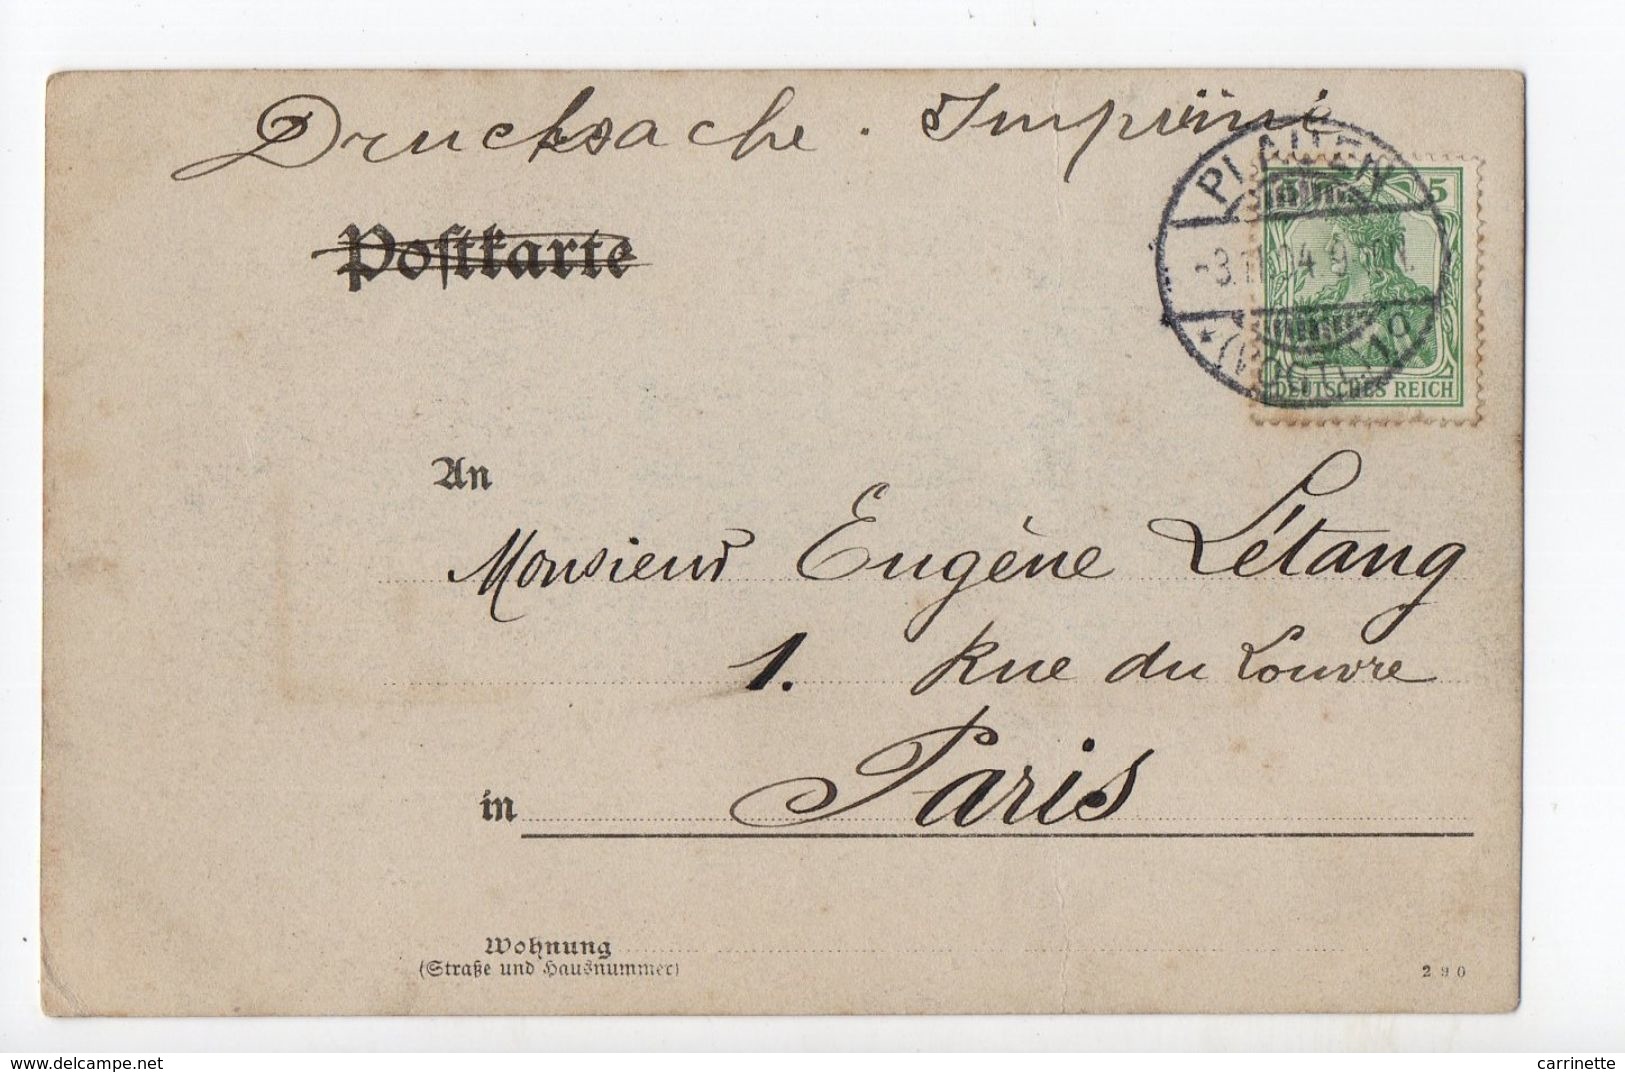 Drucksache. Imprimé
PLAUEN
Postkarte
5
-3. 04 9-10N.
(VOGTL.) 1a
DEUTSCHES REICH
An
Monsieur Eugène Létang
1. Rue du Louvre
in Paris
Wohnung
(Straße und Hausnummer)
290
www.delcampe.net
carrinette